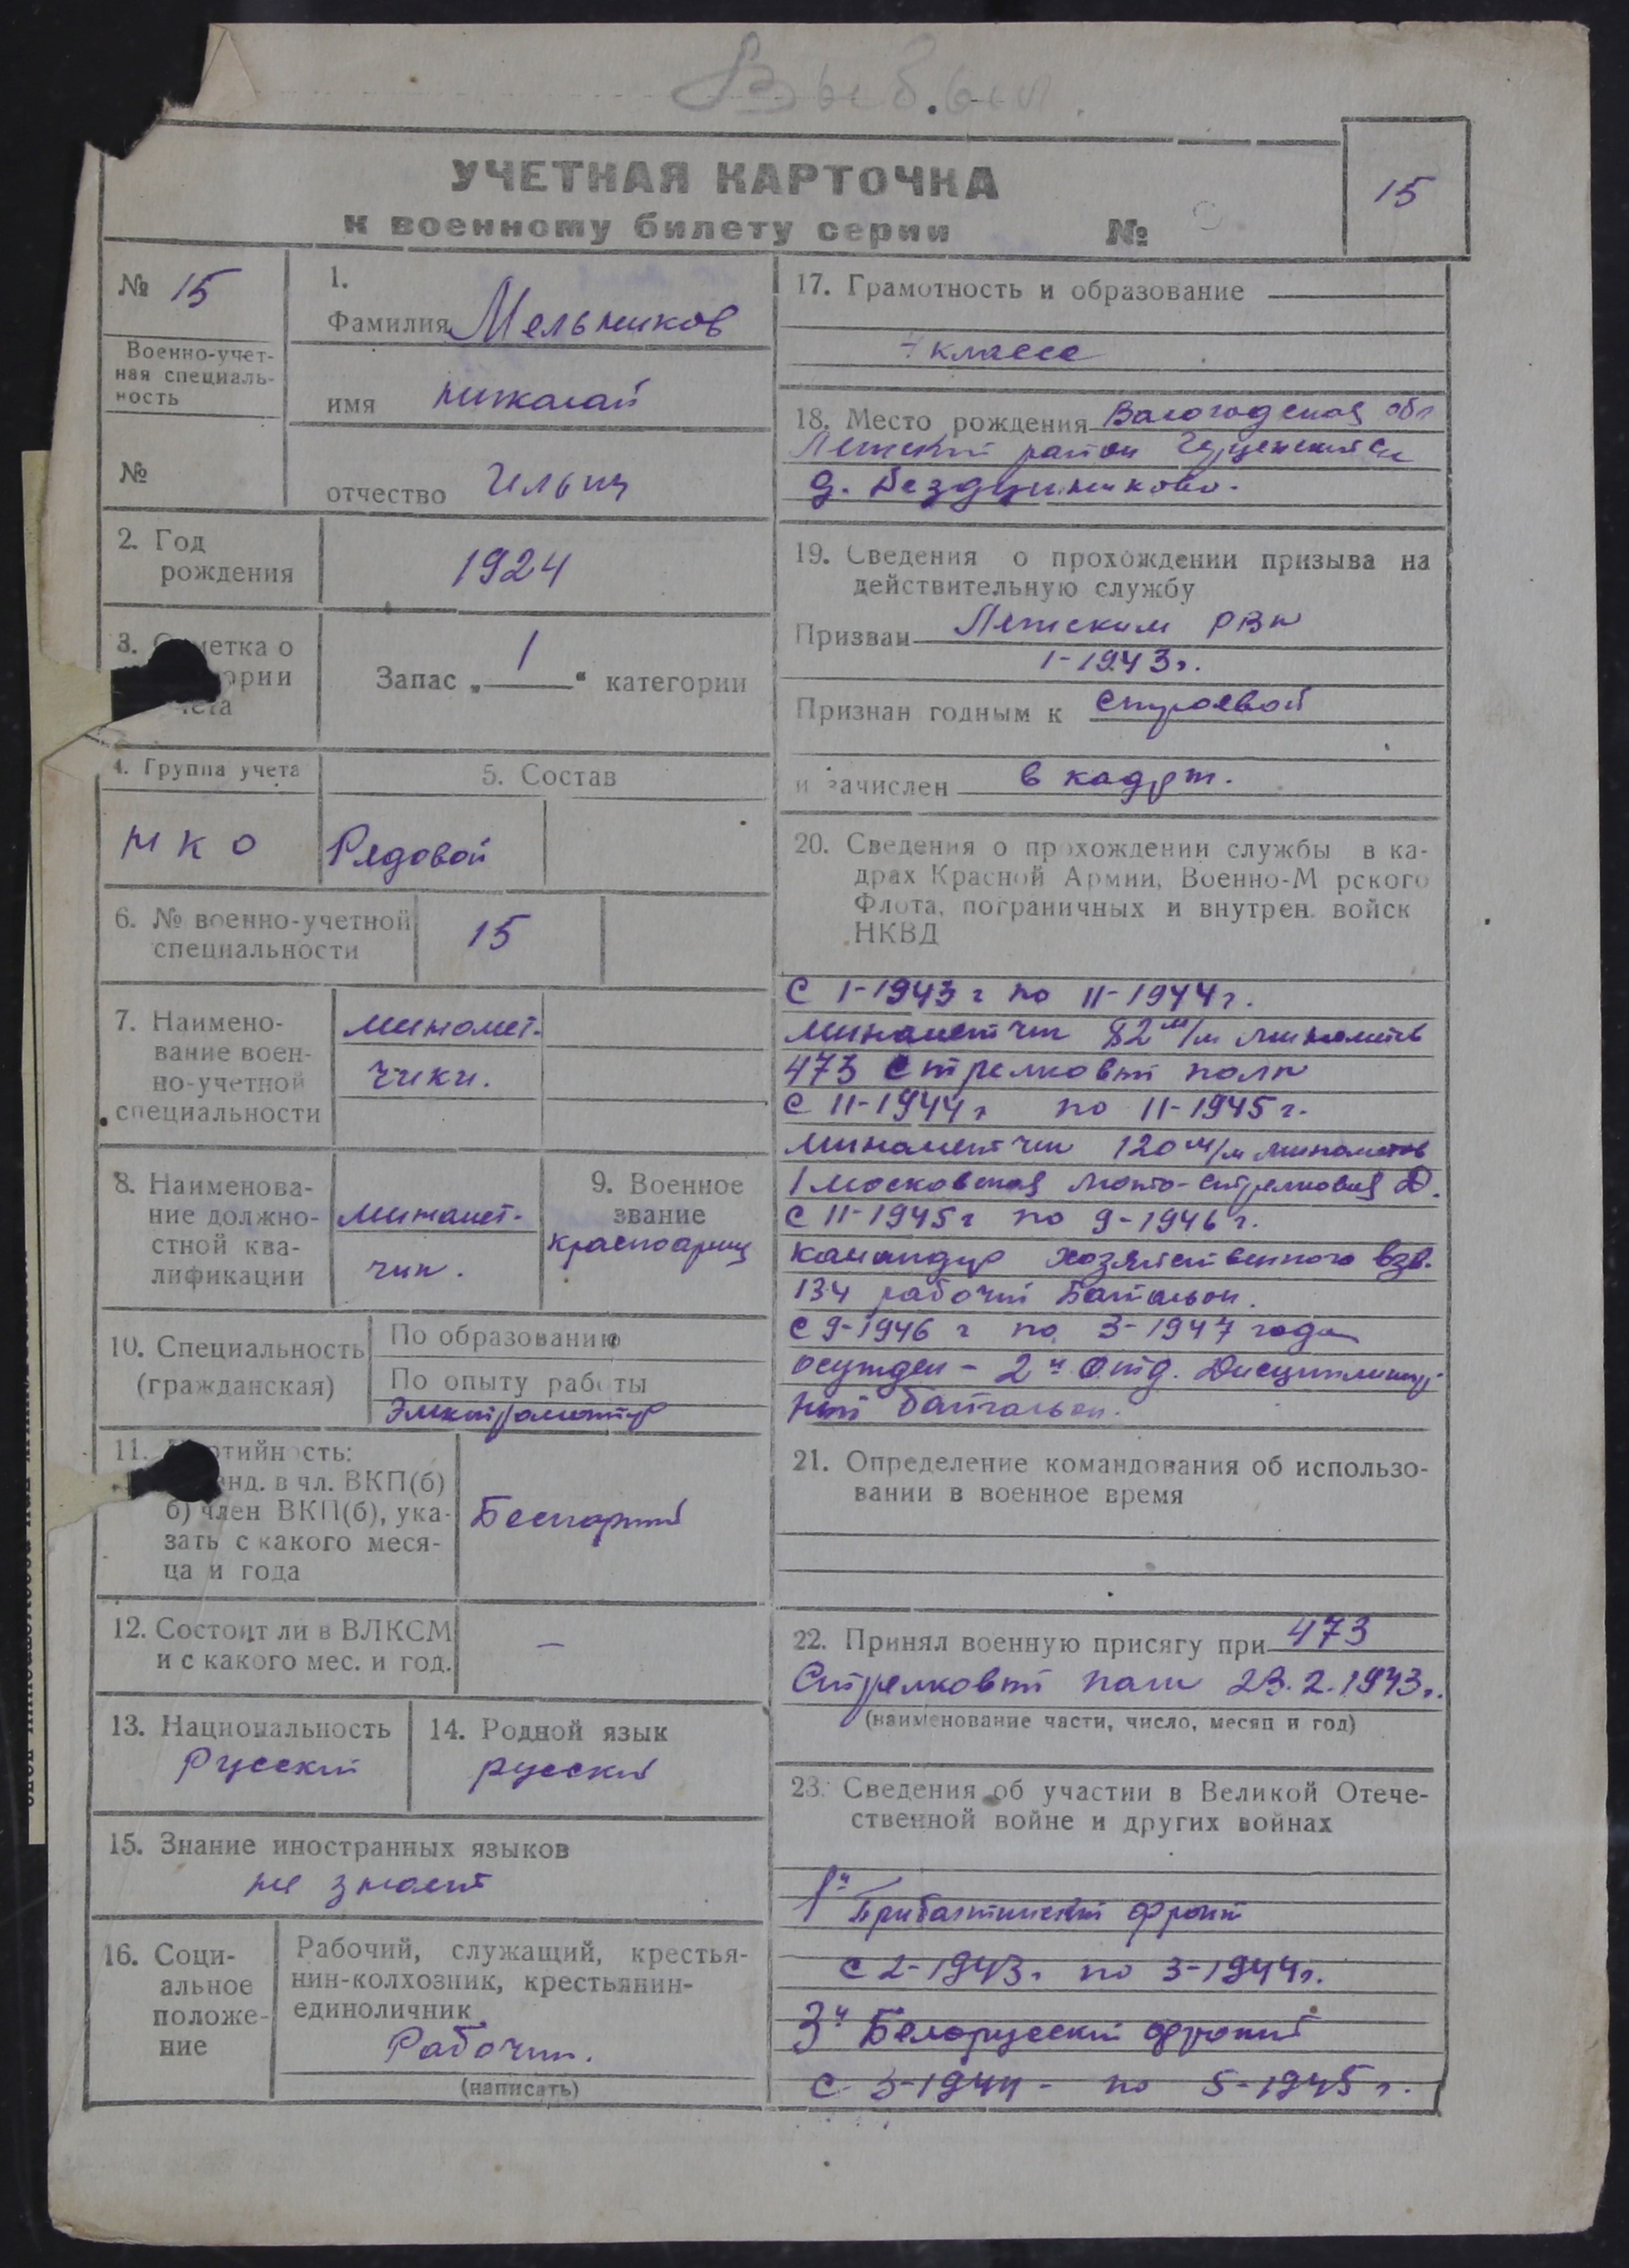 Выбыл.
УЧЕТНАЯ КАРТОЧКА
к военному билету серии №
15
№ 15
Военно-учет-
ная специаль-
ность
№
1.
Фамилия Мельников
имя николай
отчество Ильич
2. Год
рождения
1924
3. Отметка о
категории
учета
Запас „ 1 “ категории
4. Группа учета
нко
5. Состав
Рядовой
6. № военно-учетной
специальности
15
7. Наимено-
вание воен-
но-учетной
специальности
миномет-
чики.
8. Наименова-
ние должно-
стной ква-
лификации
минамет-
чик.
9. Военное
звание
красноармц
10. Специальность
(гражданская)
По образованию
По опыту работы
Электромонтер
11. Партийность:
канд. в чл. ВКП(б)
б) член ВКП(б), ука-
зать с какого меся-
ца и года
Беспартий
12. Состоит ли в ВЛКСМ
и с какого мес. и год.
—
13. Национальность
Русский
14. Родной язык
русский
15. Знание иностранных языков
не знает
16. Соци-
альное
положе-
ние
Рабочий, служащий, крестья-
нин-колхозник, крестьянин-
единоличник
Рабочий.
(написать)
17. Грамотность и образование
7 класса
18. Место рождения Вологодская обл
Летский район
д.
19. Сведения о прохождении призыва на
действительную службу
Призван Летским РВК
1-1943г.
Признан годным к строевой
и зачислен в кадры.
20. Сведения о прохождении службы в ка-
драх Красной Армии, Военно-М рского
Флота, пограничных и внутрен. войск
НКВД
С 1-1943 г по 11-1944г.
минаметчик 82 м/м минаметов
473 Стрелковый полк
С 11-1944г по 11-1945г.
минаметчик 120 м/м минаметов
1 московская мото-стрелковая Д.
С 11-1945г по 9-1946г.
камандир хозяйственного взв.
134 рабочий Батальон.
С 9-1946 г по 3-1947 года
осужден - 2й Отд. Дисциплинар-
ный батальон.
21. Определение командования об использо-
вании в военное время
22. Принял военную присягу при 473
Стрелковый полк 23.2.1943г.
(наименование части, число, месяц и год)
23. Сведения об участии в Великой Отече-
ственной войне и других войнах
1й Прибалтийский фронт
с 2-1943г по 3-1944г.
3й Белорусский фронт
с 3-1944 - по 5-1945г.